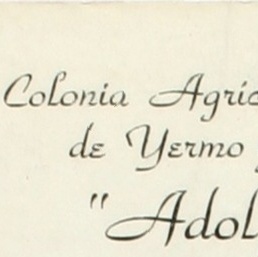 Colonia Agríc
de Yermo
"Adol